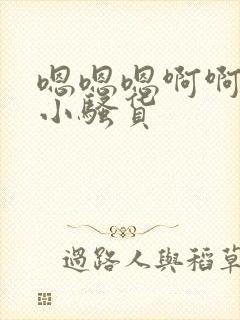 嗯嗯嗯啊啊
小骚货
過路人與稻草